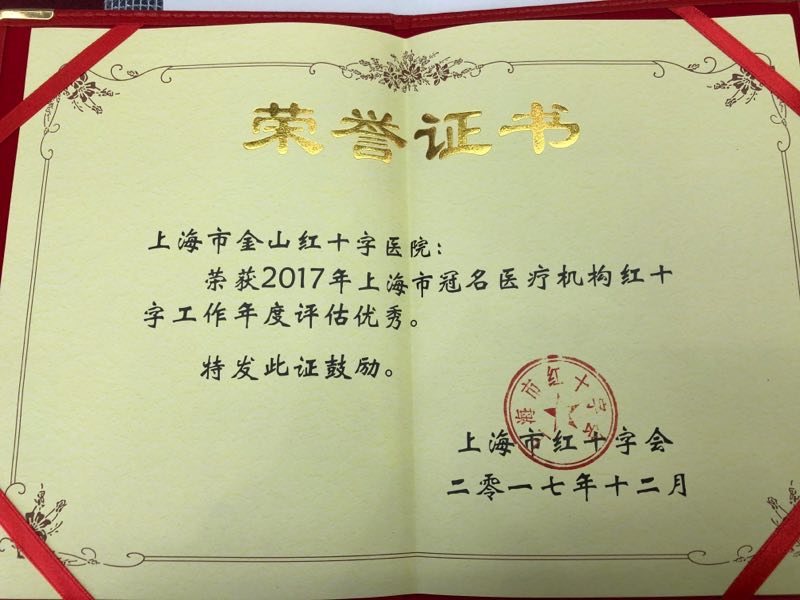 荣誉证书
上海市金山红十字医院：
荣获2017年上海市冠名医疗机构红十
字工作年度评估优秀。
特发此证鼓励。
上海市红十字会
上海市红十字会
二零一七年十二月